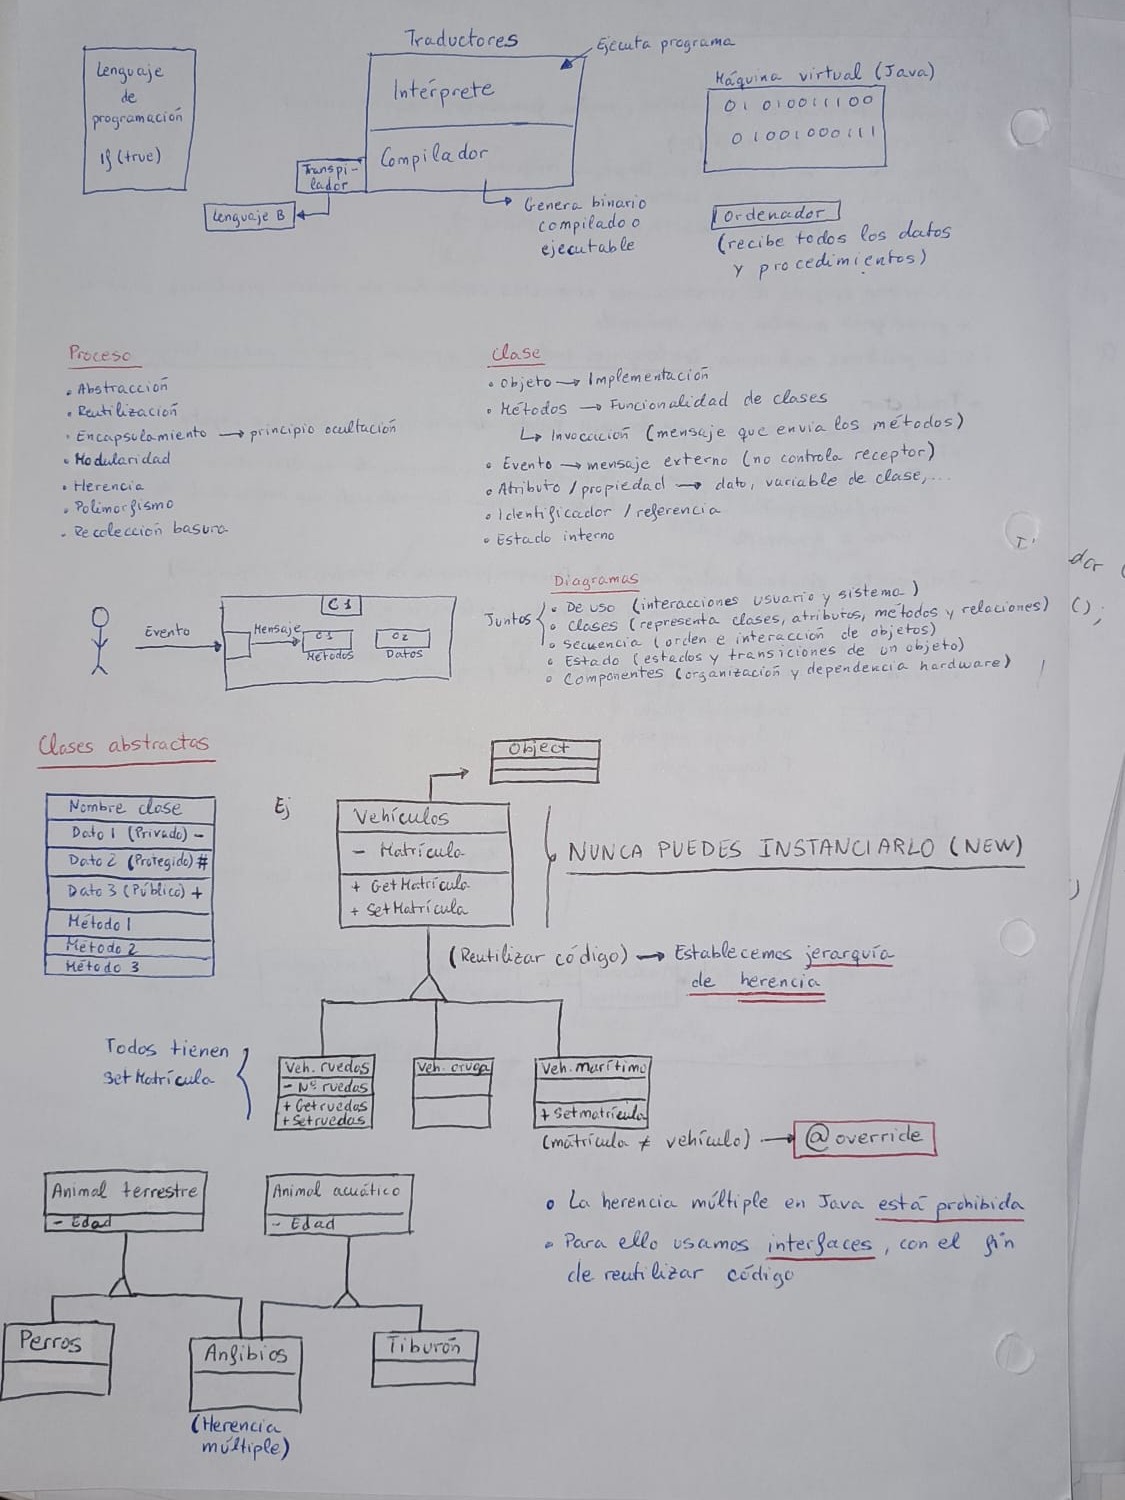 Lenguaje
de
programación
If (true)
Traductores
Intérprete
Compilador
Ejecuta programa
Transpi-
lador
Lenguaje B
Genera binario
compilado o
ejecutable
Máquina virtual (Java)
01 010011100
01001000111
Ordenador
(recibe todos los datos
y procedimientos)
Proceso
• Abstracción
• Reutilización
• Encapsulamiento → principio ocultación
• Modularidad
• Herencia
• Polimorfismo
• Recolección basura
Clase
• Objeto → Implementación
• Métodos → Funcionalidad de clases
↳ Invocación (mensaje que envia los métodos)
• Evento → mensaje externo (no controla receptor)
• Atributo / propiedad → dato, variable de clase,...
• Identificador / referencia
• Estado interno
Evento
C1
Mensaje
Métodos
Datos
Diagramas
Juntos
• De uso (interacciones usuario y sistema)
• Clases (representa clases, atributos, métodos y relaciones)
• Secuencia (orden e interacción de objetos)
• Estado (estados y transiciones de un objeto)
• Componentes (organización y dependencia hardware)
Clases abstractas
Nombre clase
Dato 1 (Privado) -
Dato 2 (Protegido) #
Dato 3 (Público) +
Método 1
Método 2
Método 3
Ej
Object
Vehículos
- Matrícula
+ GetMatrícula
+ SetMatrícula
NUNCA PUEDES INSTANCIARLO (NEW)
(Reutilizar código) → Establecemos jerarquía
de herencia
Todos tienen
SetMatrícula
Veh. ruedas
- Nº ruedas
+ Getruedas
+ Setruedas
Veh. oruga
Veh. marítimo
+ Setmatrícula
(matrícula ≠ vehículo) → @override
Animal terrestre
- Edad
Animal acuático
- Edad
Perros
Anfibios
Tiburón
(Herencia
múltiple)
• La herencia múltiple en Java está prohibida
• Para ello usamos interfaces, con el fin
de reutilizar código